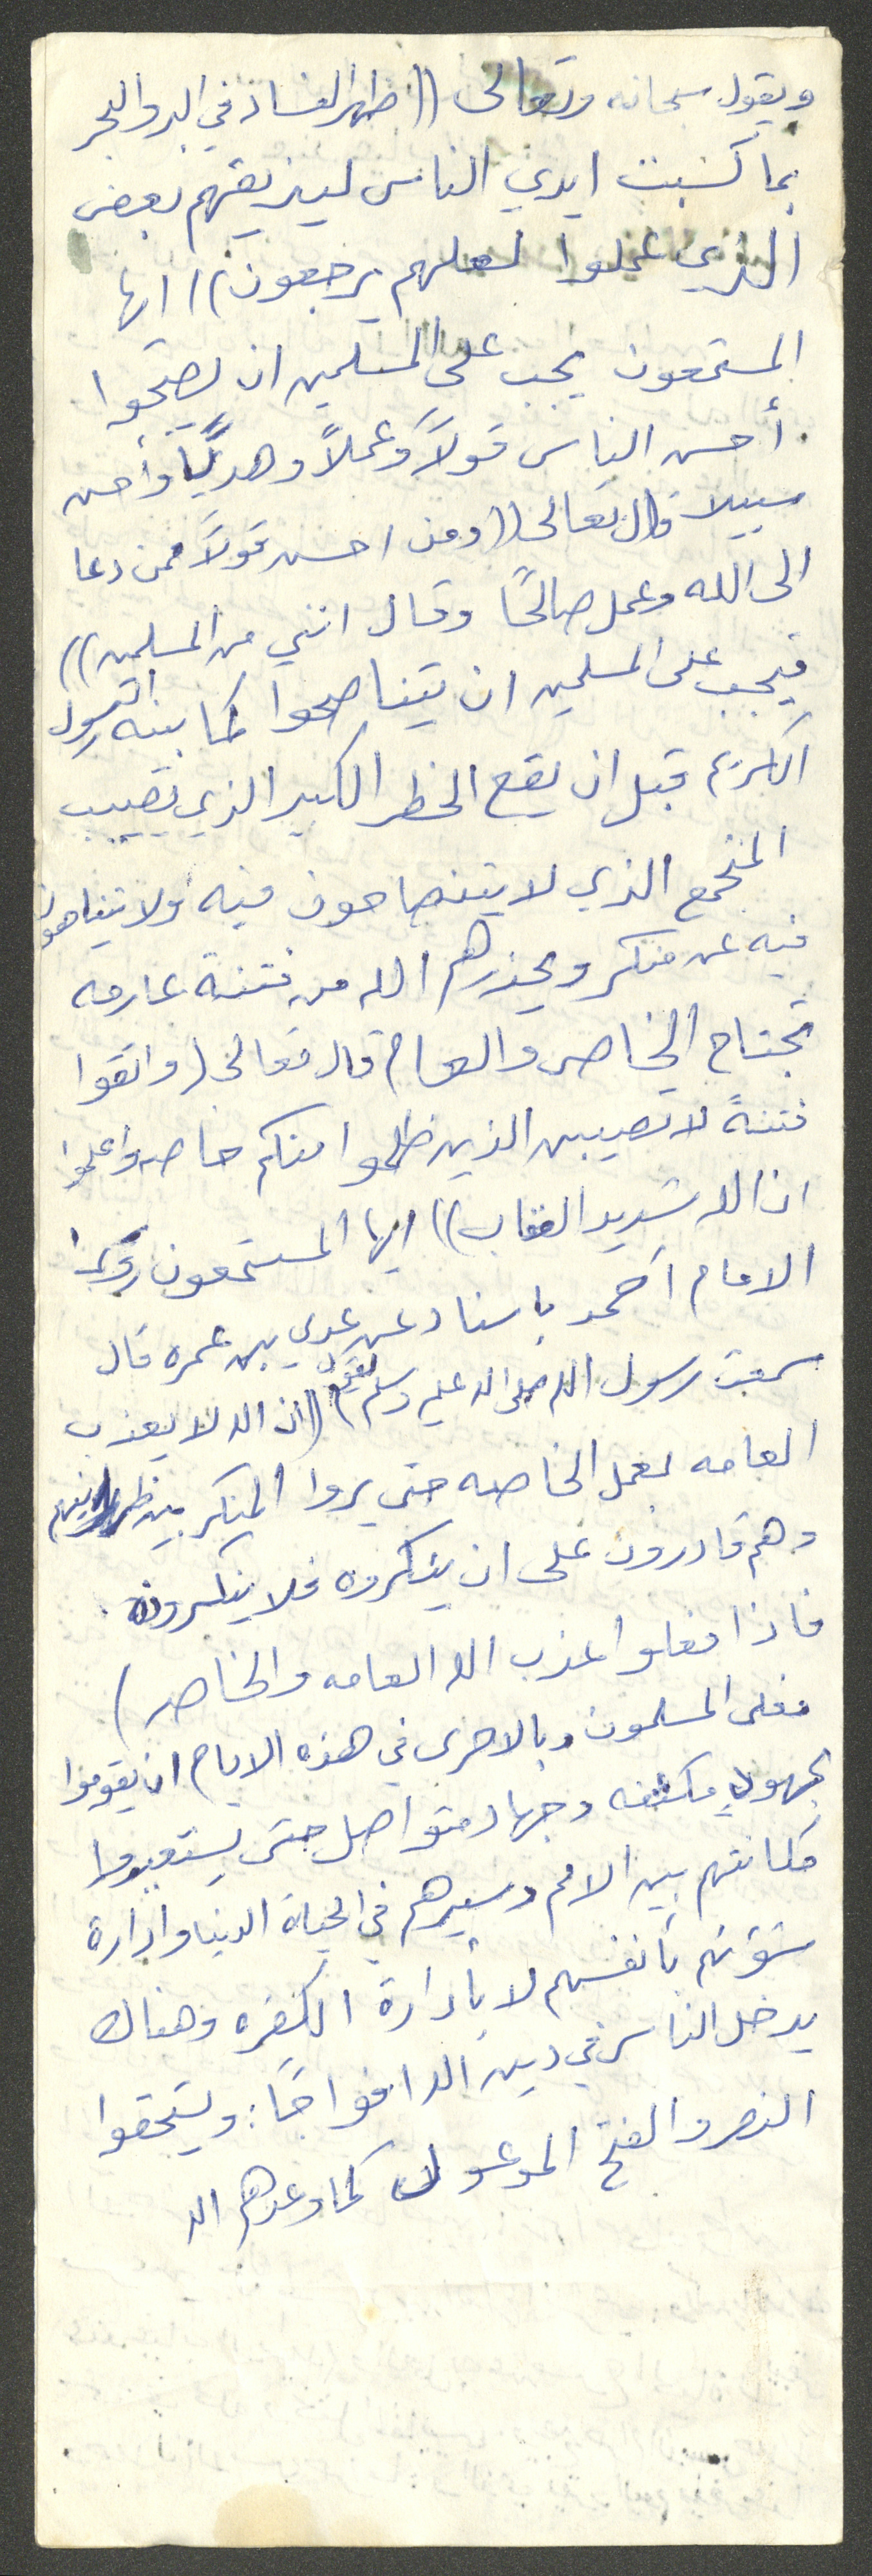 ويقول سبحانه وتعالى ((ظهر الفساد في البر والبحر
بما كسبت ايدي الناس ليذيقهم بعض
الذي عملوا لعلهم يرجعون)) ايها
المستمعون يجب على المسلمين ان يصبحوا
أحسن الناس قولاً وعملاً وهدياً وأحسن
سبيلا قال تعالى ((ومن احسن قولاً ممن دعا
الى الله وعمل صالحًا وقال انني من المسلمين))
فيجب على المسلمين ان يتناصحوا كما بينه الرسول
الكريم قبل ان يقع الخطر الكبير الذي يصيب
المجتمع الذي لا يتناصحون فيه ولا يتناهون
فيه عن منكر ويحذرهم الله من فتنة عارمه
تجتاح الخاص والعام قال تعالى (واتقوا
فتنةً لا تصيبن الذين ظلموا منكم خاصه واعلموا
ان الله شديد العقاب)) ايها المستمعون
الامام احمد باسناد عن عدي بن عمره قال
سمعت رسول الله صلى الله عليه وسلم يقول ((ان الله لا يعذب
العامه بعمل الخاصه حتى يروا المنكر بين ظهرانيهم
وهم قادرون على ان ينكروه فلا ينكرونه
فاذا فعلوا عذب الله العامه والخاصه)
فعلى المسلمون وبالاحرى في هذه الايام ان يقوموا
بجهود مكثفه وجهاد متواصل حتى يستعيدوا
مكانتهم بين الامم وسيرهم في الحياة الدنيا وادارة
شؤنهم بأنفسهم لا بأدارة الكفره وهناك
يدخل الناس في دين الله افواجًا: ويستحقوا
النصر والفتح الموعود كما وعدهم الله